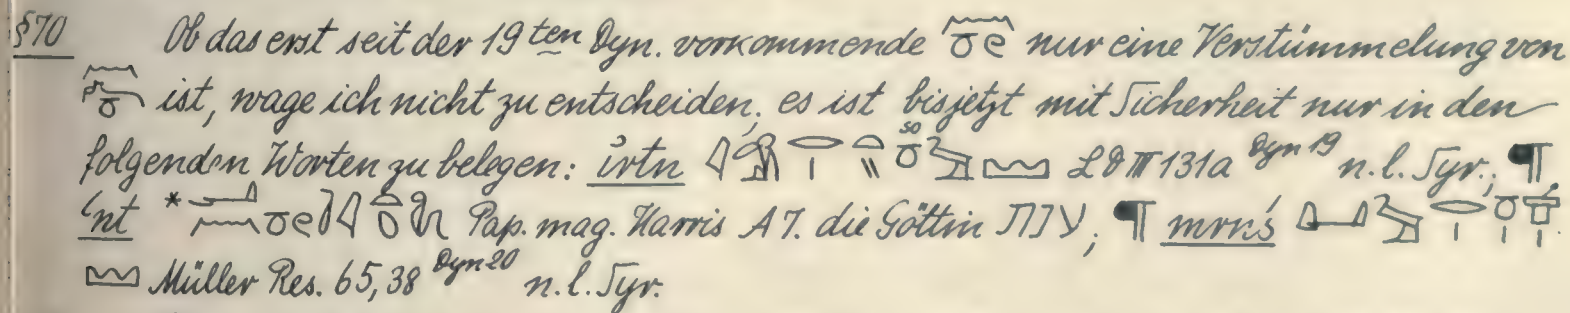 §70 Ob das erst seit der 19ten Dyn. vorkommende nur eine Verstümmelung von
ist, wage ich nicht zu entscheiden; es ist bisjetzt mit Sicherheit nur in den
folgenden Worten zu belegen: irtn so LD III 131a Dyn 19 n. l. Syr.; ¶
ʿnt * Pap. mag. Harris A 7. die Göttin ענת; ¶ mrnś
Müller Res. 65,38 Dyn 20 n. l. Syr.